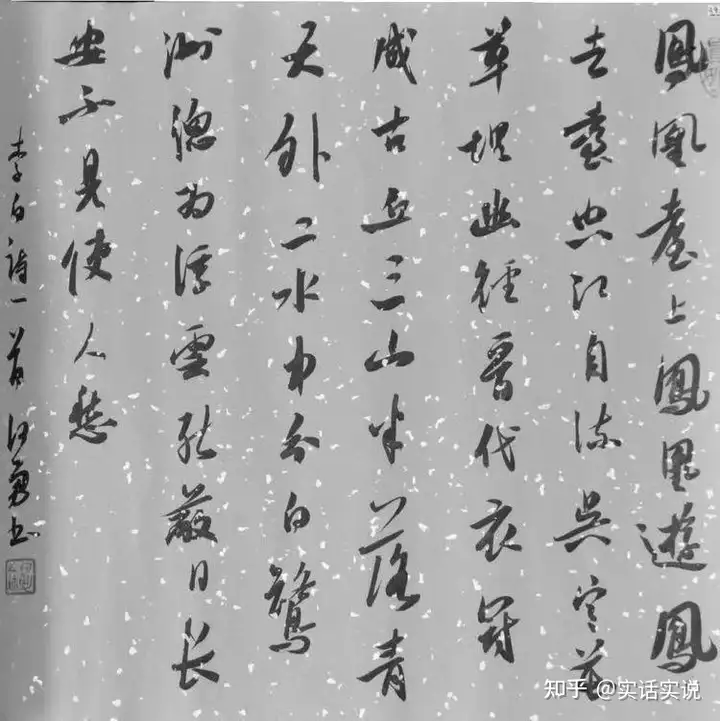 鳳凰臺上鳳凰遊鳳
去臺空江自流吳宮花
草埋幽徑晉代衣冠
成古丘三山半落青
天外二水中分白鷺
洲總為浮雲能蔽日長
安不見使人愁
李白詩一首 何勇书
知乎 @实话实说